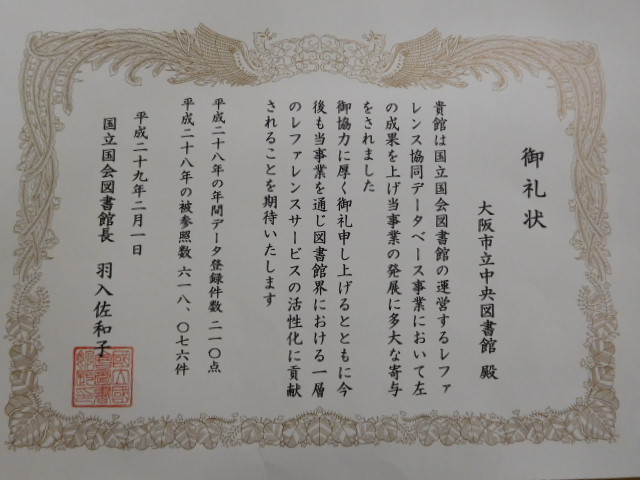 御礼状
大阪市立中央図書館 殿
貴館は国立国会図書館の運営するレファ
レンス協同データベース事業において左
の成果を上げ当事業の発展に多大な寄与
をされました
御協力に厚く御礼申し上げるとともに今
後も当事業を通じ図書館界における一層
のレファレンスサービスの活性化に貢献
されることを期待いたします
平成二十八年の年間データ登録件数 二一〇点
平成二十八年の被参照数 六一八、〇七六件
平成二十九年二月一日
国立国会図書館長 羽入佐和子